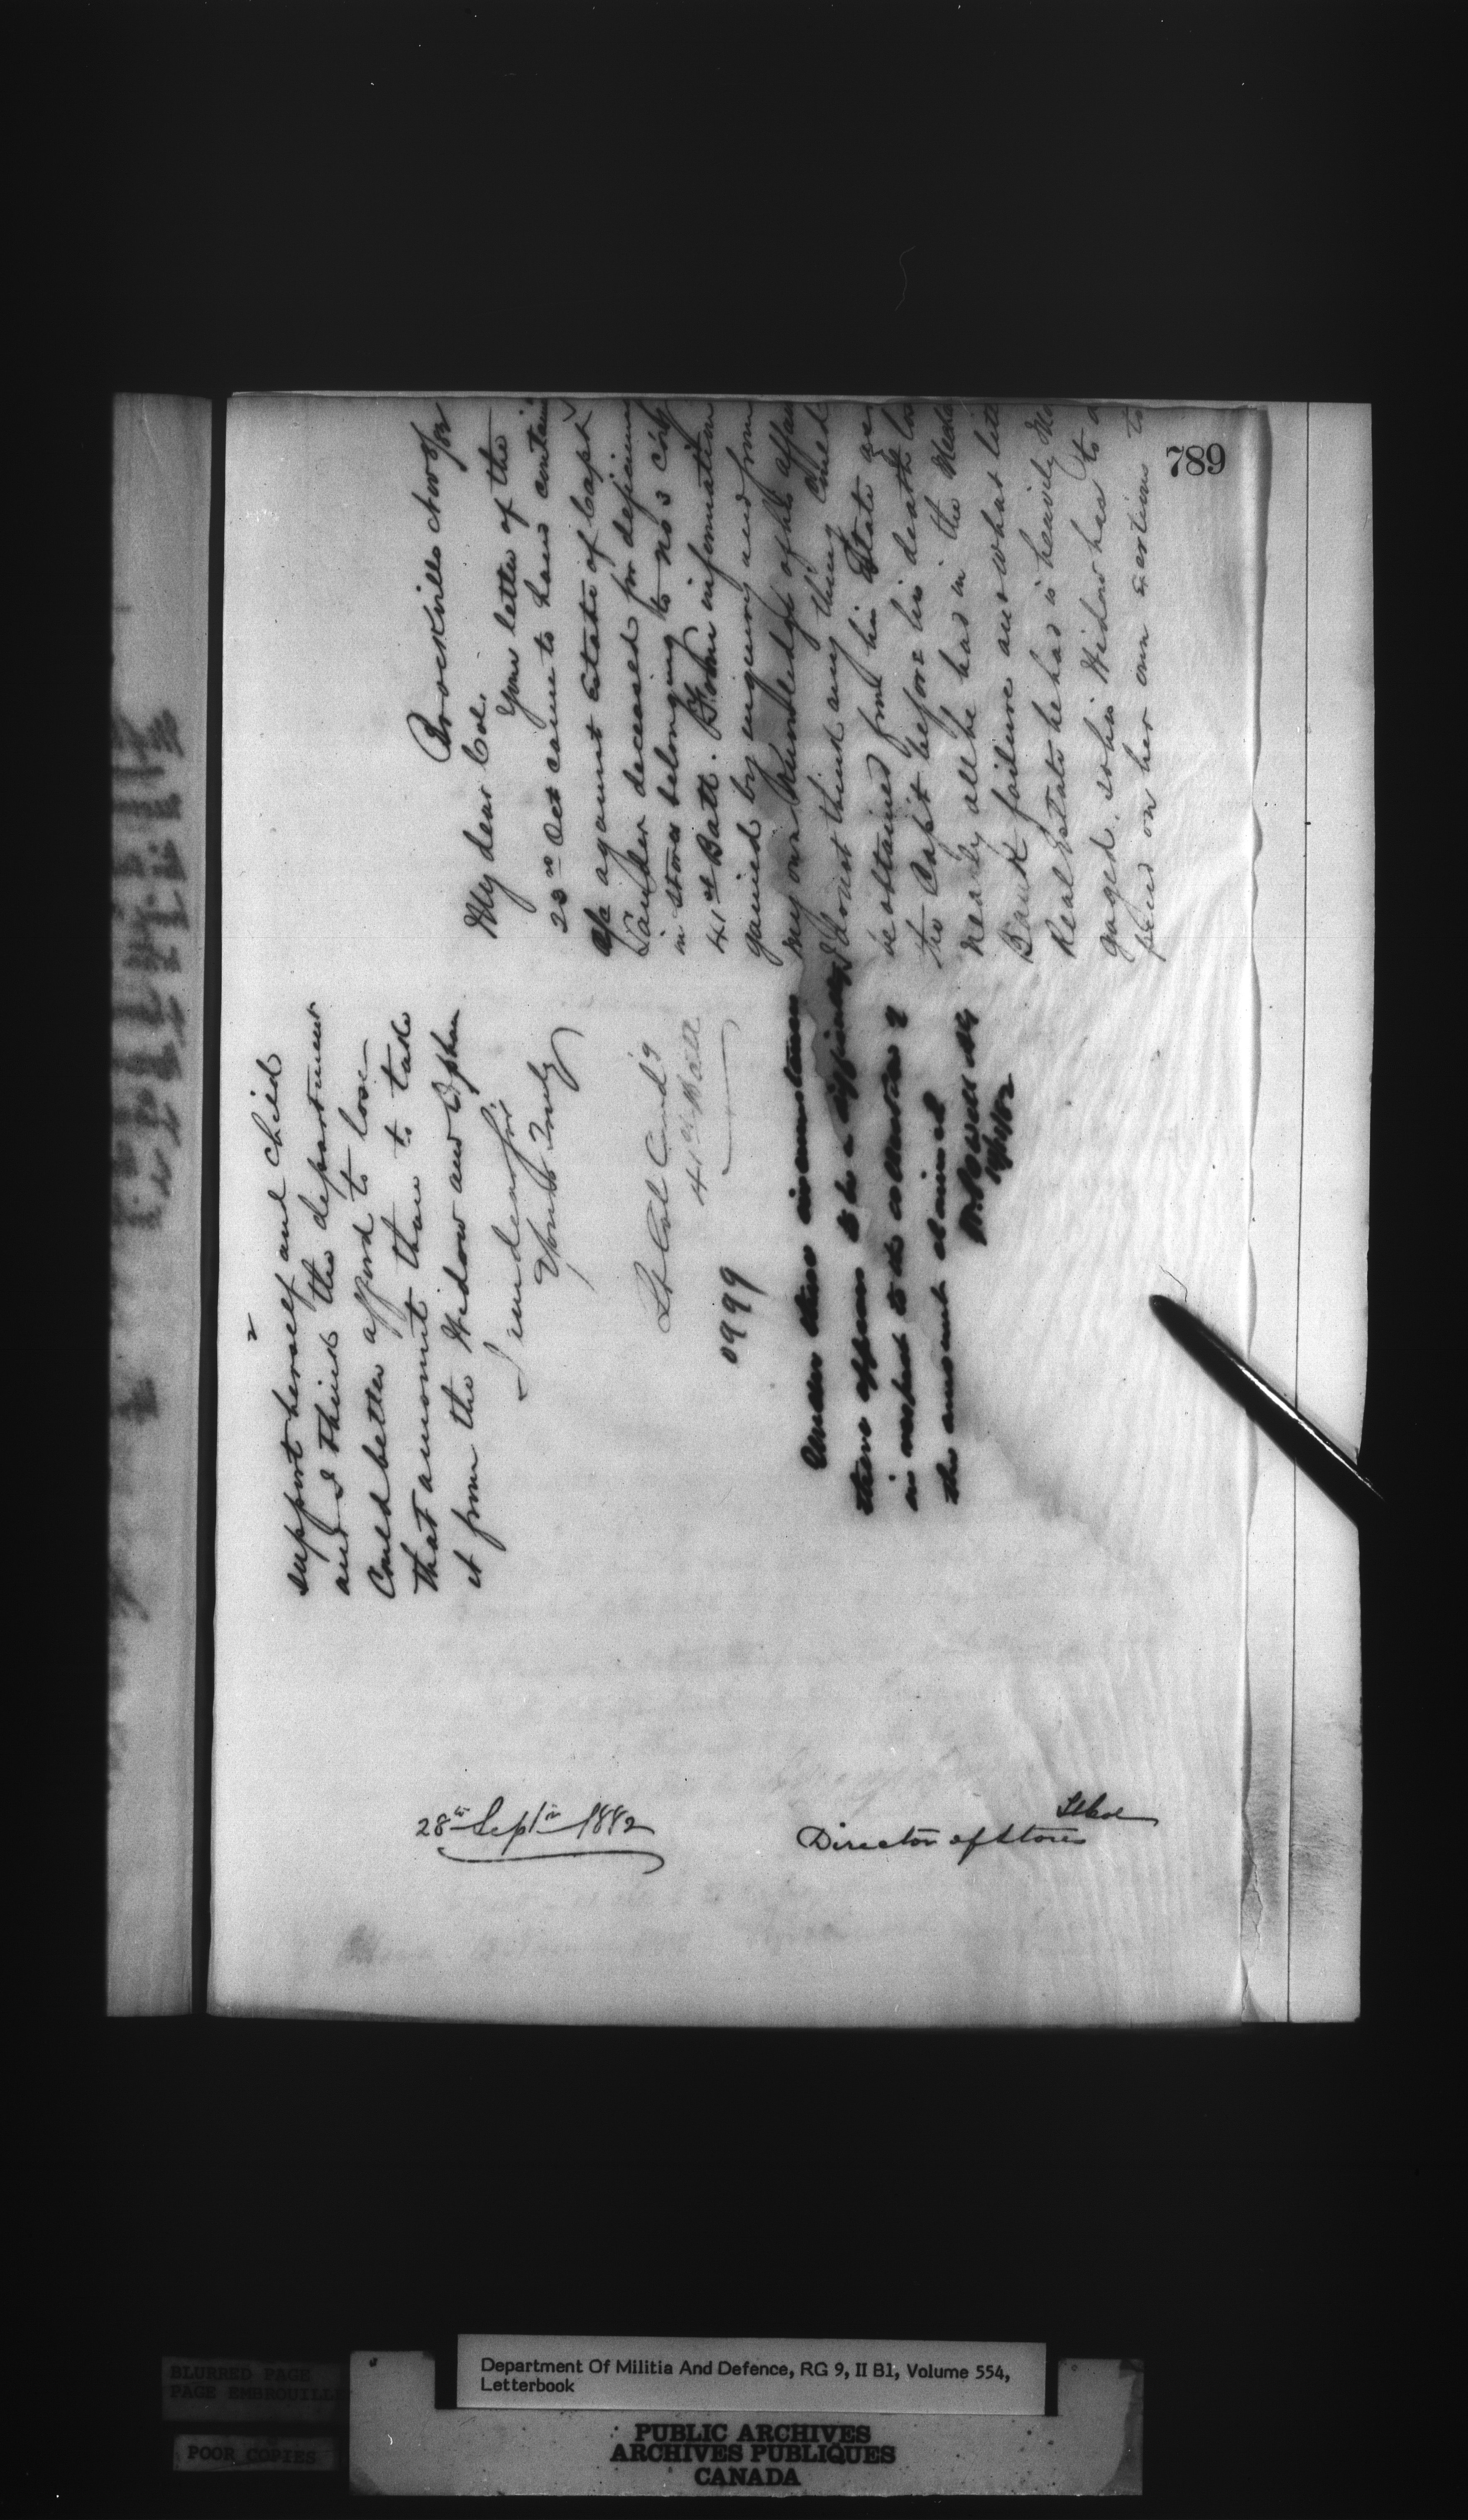 789
Brockville Nov 8/82
My dear Col.
Your letter of the
23rd Oct came to hand containi
a/c against Estate of Capt
deceased for deficiency
in stores belonging to No 3 Coy
41st Batt. From information
gained by enquiry and from
my own knowledge of his affair
I do not think any thing could
be obtained from his Estate as
the Capt before his death lo
nearly all he had in the
Bank failure and what litt
Real Estate he has is heavily Mo
gaged. so his Widow has to
pend on her own exertions to
2
support herself and child
and I think the department
Could better afford to lose
that amount than to take
it from the Widow and Orphan
I am dear Sir
Yours Truly
Lt Col Comdg
41st Batt
0999
Under these circumstances
there appears to be a difficulty
in respect to the collection of
the amount claimed
28th Septr 1882
Lt Col
Director of Stores
BLURRED PAGE
PAGE EMBROUILL
POOR COPIES
Department Of Militia And Defence, RG 9, II B1, Volume 554,
Letterbook
PUBLIC ARCHIVES
ARCHIVES PUBLIQUES
CANADA